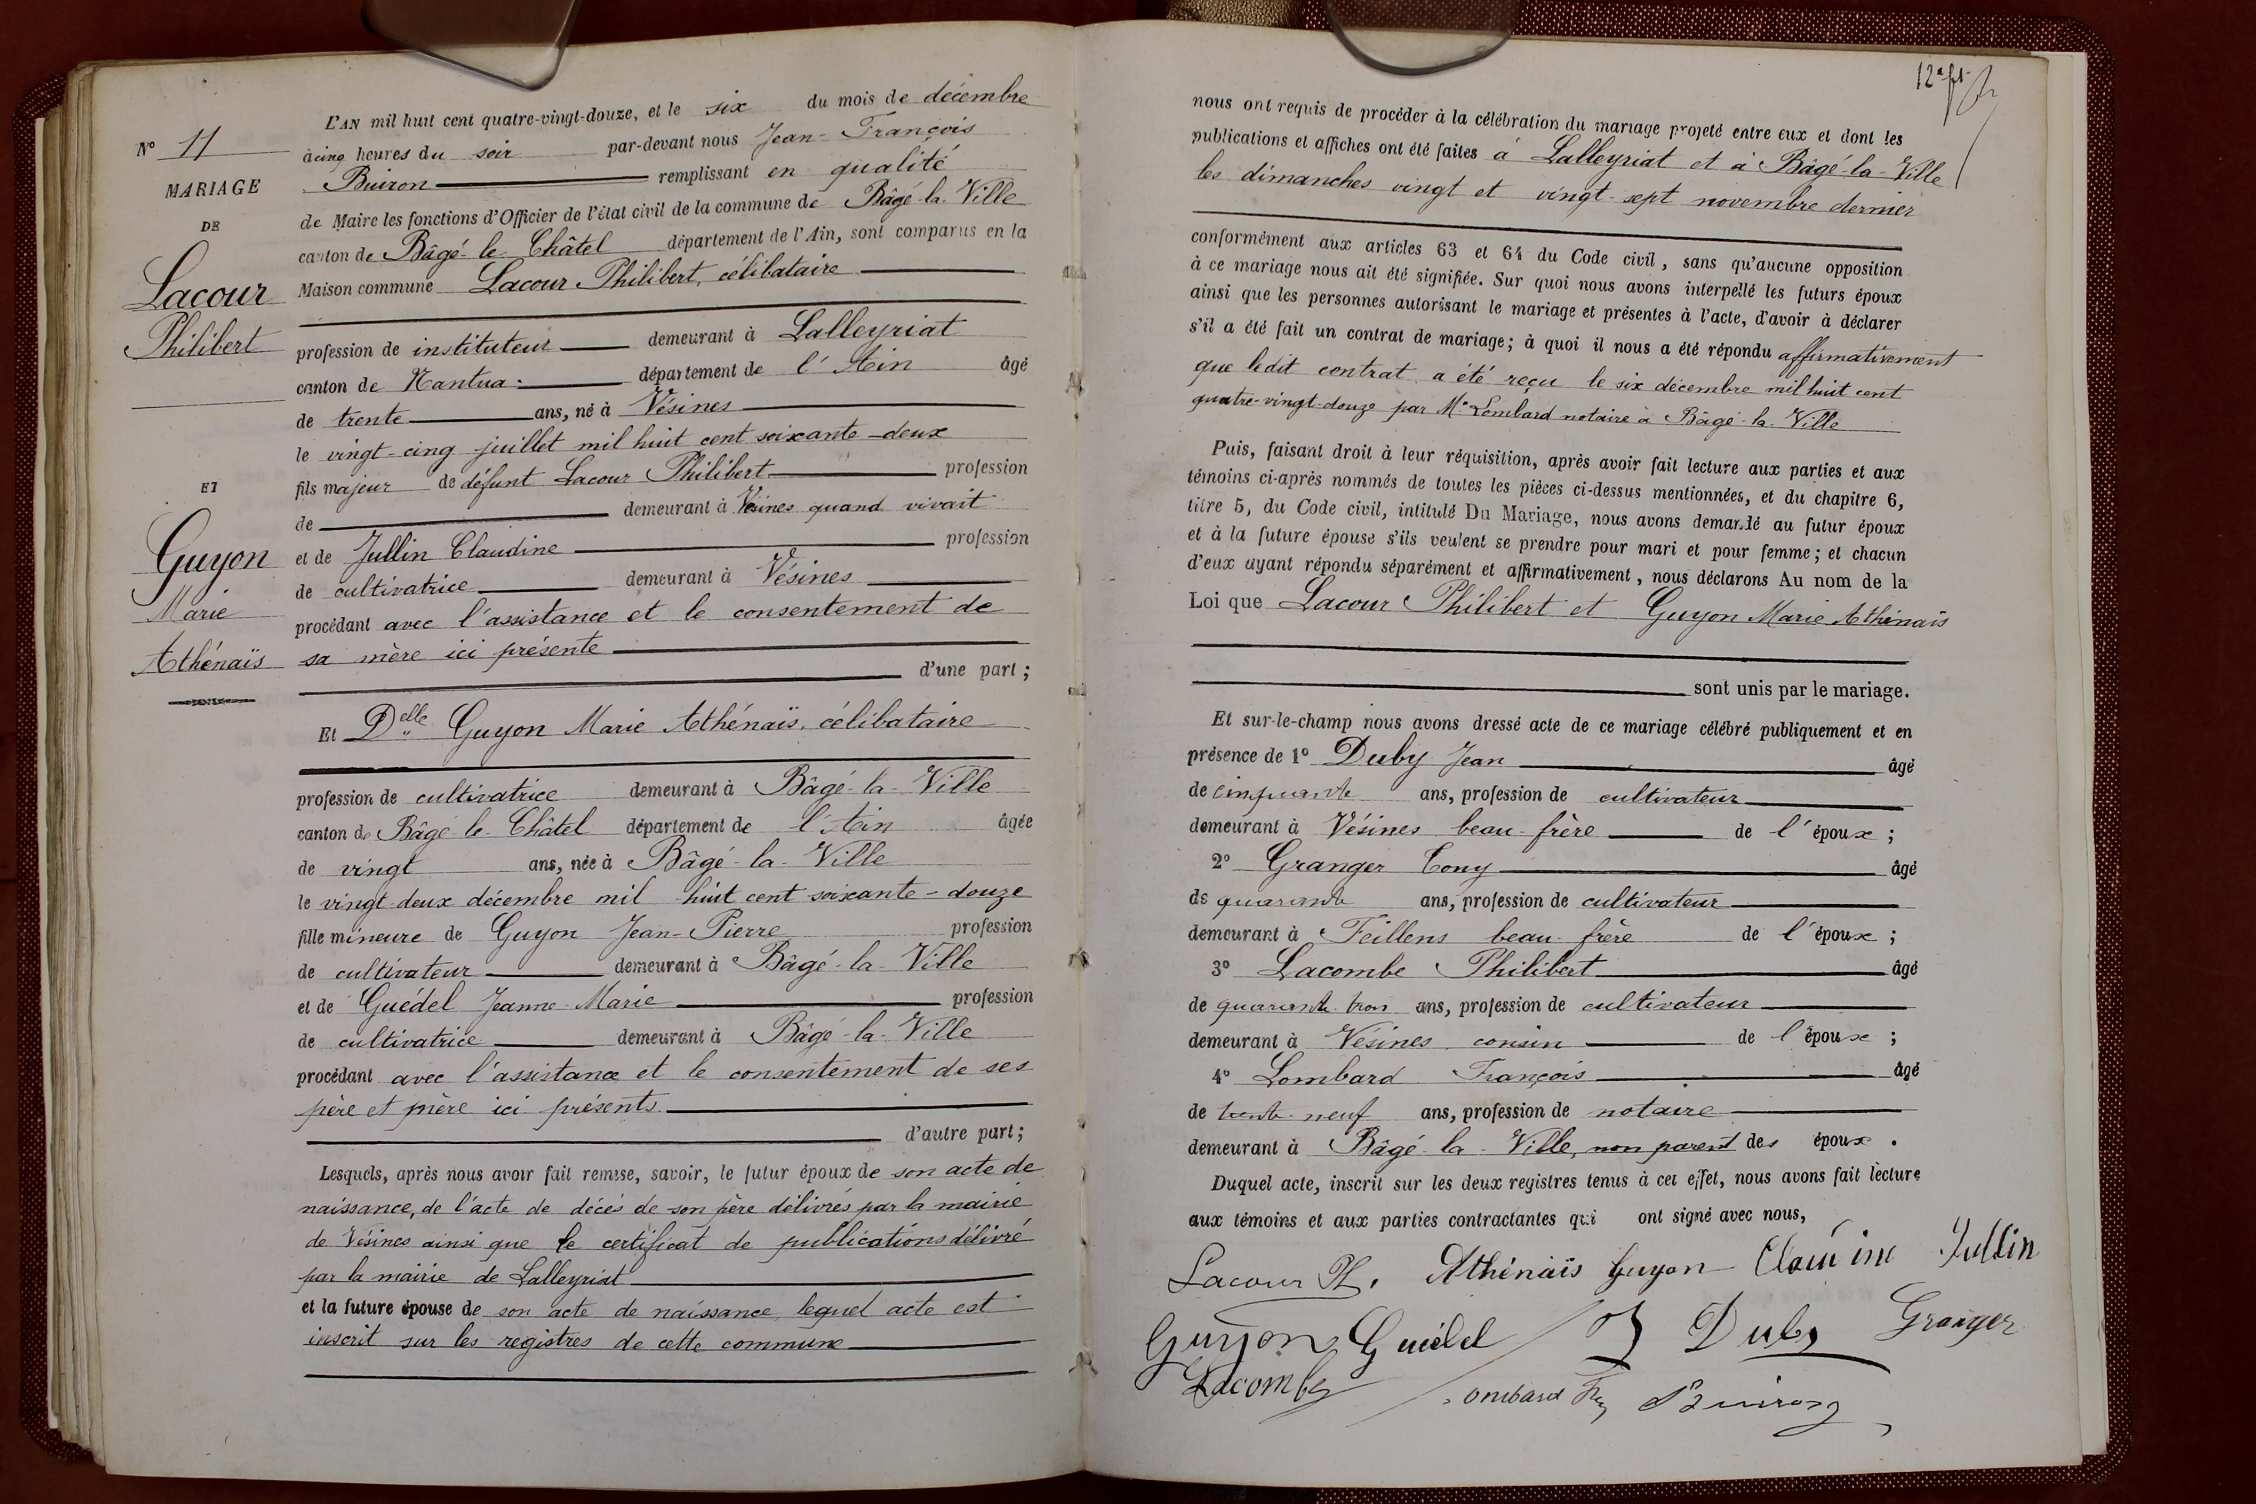 N° 11
MARIAGE
DE
Lacour
Philibert
ET
Guyon
Marie
Athénaïs
L'AN mil huit cent quatre-vingt-douze, et le six du mois de décembre
à cinq heures du soir par-devant nous Jean-François
Buiron remplissant en qualité
de Maire les fonctions d'Officier de l'état civil de la commune de Bâgé-la-Ville
canton de Bâgé-le-Châtel département de l'Ain, sont comparus en la
Maison commune Lacour Philibert, célibataire
profession de instituteur demeurant à Lalleyriat
canton de Nantua département de l'Ain âgé
de trente ans, né à Vésines
le vingt-cinq juillet mil huit cent soixante-deux
fils majeur de défunt Lacour Philibert profession
de demeurant à Vésines quand vivait
et de Jullin Claudine profession
de cultivatrice demeurant à Vésines
procédant avec l'assistance et le consentement de
sa mère ici présente
d'une part ;
Et Delle Guyon Marie Athénaïs, célibataire
profession de cultivatrice demeurant à Bâgé-la-Ville
canton de Bâgé-le-Châtel département de l'Ain âgée
de vingt ans, née à Bâgé-la-Ville
le vingt-deux décembre mil huit cent soixante-douze
fille mineure de Guyon Jean-Pierre profession
de cultivateur demeurant à Bâgé-la-Ville
et de Guédel Jeanne-Marie profession
de cultivatrice demeurant à Bâgé-la-Ville
procédant avec l'assistance et le consentement de ses
père et mère ici présents
d'autre part ;
Lesquels, après nous avoir fait remise, savoir, le futur époux de son acte de
naissance, de l'acte de décès de son père délivrés par la mairie
de Vésines ainsi que le certificat de publications délivré
par la mairie de Lalleyriat
et la future épouse de son acte de naissance lequel acte est
inscrit sur les registres de cette commune
nous ont requis de procéder à la célébration du mariage projeté entre eux et dont les
publications et affiches ont été faites à Lalleyriat et à Bâgé-la-Ville
les dimanches vingt et vingt-sept novembre dernier
conformément aux articles 63 et 64 du Code civil, sans qu'aucune opposition
à ce mariage nous ait été signifiée. Sur quoi nous avons interpellé les futurs époux
ainsi que les personnes autorisant le mariage et présentes à l'acte, d'avoir à déclarer
s'il a été fait un contrat de mariage; à quoi il nous a été répondu affirmativement
que ledit contrat a été reçu le six décembre mil huit cent
quatre-vingt-douze par Me Lombard notaire à Bâgé-la-Ville
Puis, faisant droit à leur réquisition, après avoir fait lecture aux parties et aux
témoins ci-après nommés de toutes les pièces ci-dessus mentionnées, et du chapitre 6,
titre 5, du Code civil, intitulé Du Mariage, nous avons demandé au futur époux
et à la future épouse s'ils veulent se prendre pour mari et pour femme; et chacun
d'eux ayant répondu séparément et affirmativement, nous déclarons Au nom de la
Loi que Lacour Philibert et Guyon Marie Athénaïs
sont unis par le mariage.
Et sur-le-champ nous avons dressé acte de ce mariage célébré publiquement et en
présence de 1° Duby Jean âgé
de cinquante ans, profession de cultivateur
demeurant à Vésines beau-frère de l'époux ;
2° Granger Tony âgé
de quarante ans, profession de cultivateur
demeurant à Feillens beau-frère de l'époux ;
3° Lacombe Philibert âgé
de quarante-trois ans, profession de cultivateur
demeurant à Vésines cousin de l'époux ;
4° Lombard François âgé
de trente-neuf ans, profession de notaire
demeurant à Bâgé-la-Ville, non parent des époux.
Duquel acte, inscrit sur les deux registres tenus à cet effet, nous avons fait lecture
aux témoins et aux parties contractantes qui ont signé avec nous,
Lacour Ph. Athénaïs Guyon Claudine Jullin
Guyon Guédel J Duby Granger
Lacombe Lombard Buiron